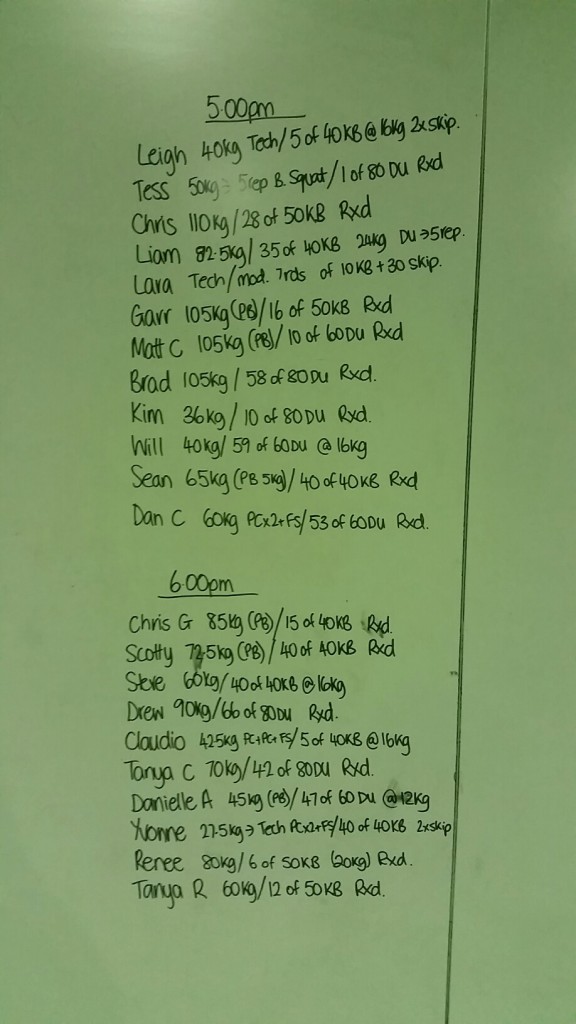 5.00pm
Leigh 40kg Tech/5 of 40KB@16kg 2xskip.
Tess 50kg → 5rep B. Squat/1 of 80 DU Rxd
Chris 110kg/28 of 50KB Rxd
Liam 82.5kg/35 of 40KB 24kg DU→5rep.
Lara Tech/mod. 7rds of 10KB+30 skip.
Garr 105kg(PB)/16 of 50KB Rxd
Matt C 105kg(PB)/10 of 60DU Rxd
Brad 105kg/58 of 80DU Rxd.
Kim 36kg/10 of 80DU Rxd.
Will 40kg/59 of 60DU @16kg
Sean 65kg(PB 5kg)/40 of 40KB Rxd
Dan C 60kg PCx2+FS/53 of 60DU Rxd.
6.00pm
Chris G 85kg(PB)/15 of 40KB Rxd.
Scotty 72.5kg(PB)/40 of 40KB Rxd
Steve 60kg/40 of 40KB@16kg
Drew 90kg/66 of 80DU Rxd.
Claudio 42.5kg PC+PC+FS/5 of 40KB@16kg
Tanya C 70kg/42 of 80DU Rxd.
Danielle A 45kg(PB)/47 of 60DU @12kg
Yvonne 27.5kg→Tech PCx2+FS/40 of 40KB 2xskip
Renee 80kg/6 of 50KB (20kg) Rxd.
Tanya R 60kg/12 of 50KB Rxd.